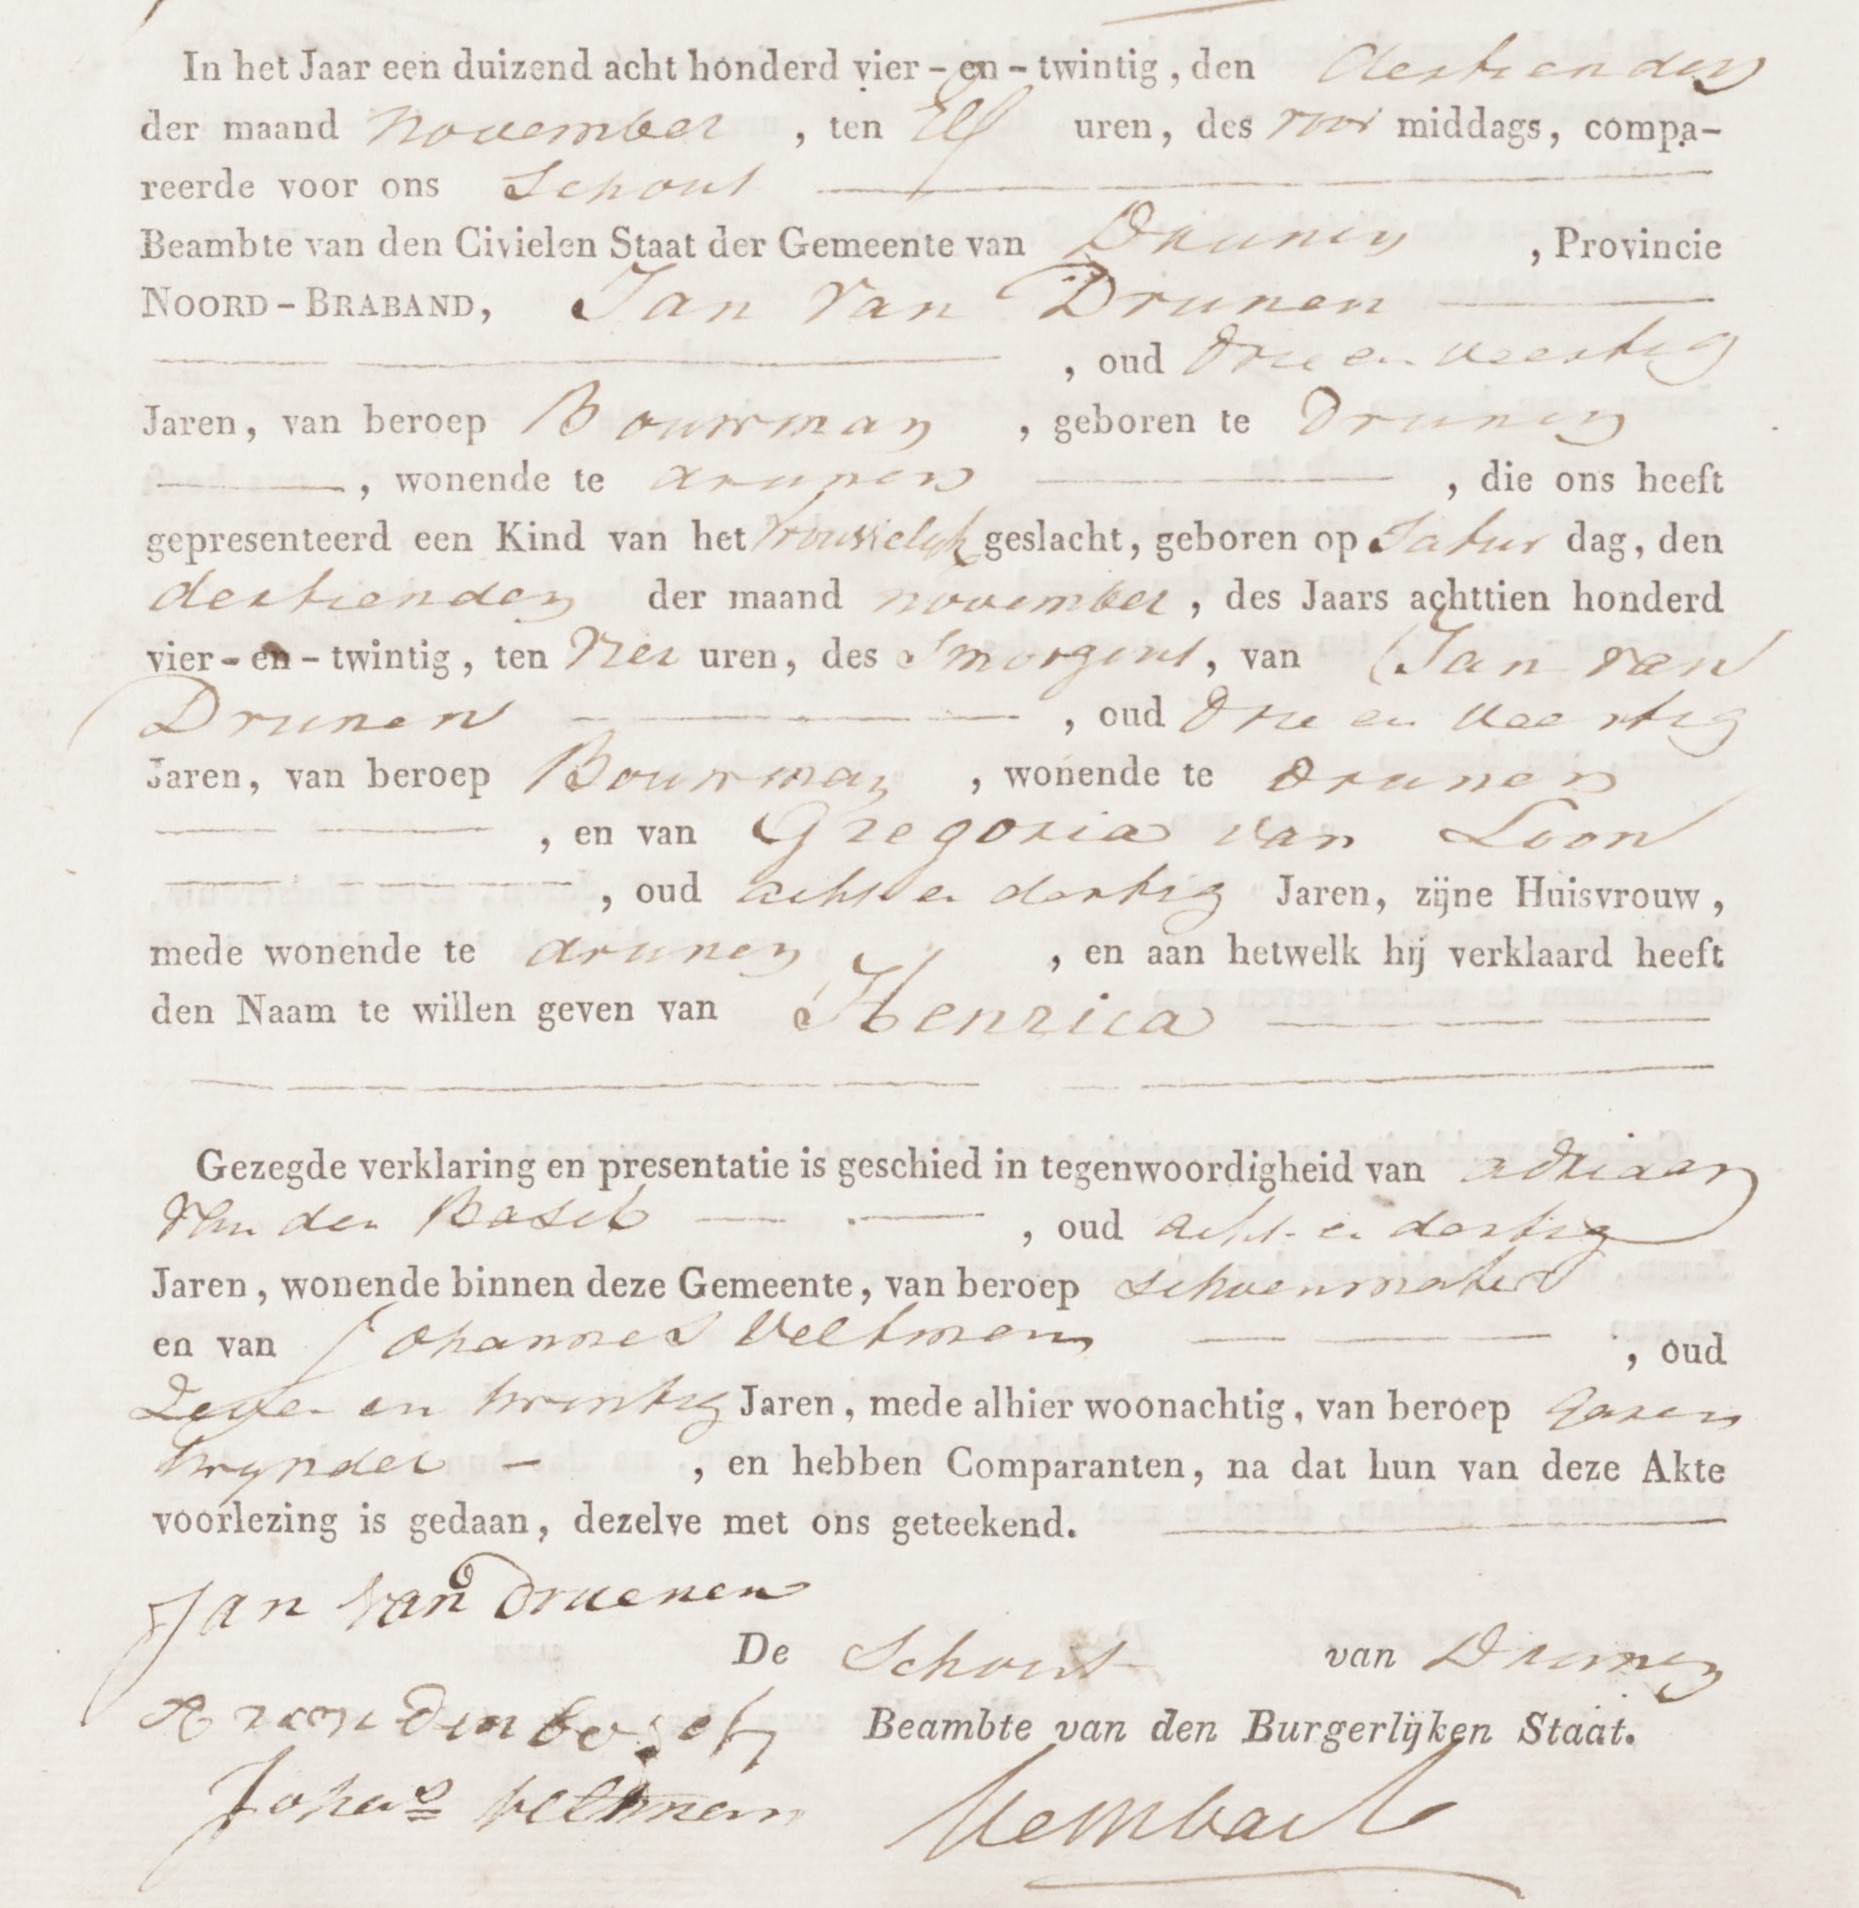 In het Jaar een duizend acht honderd vier-en-twintig, den dertienden
der maand November , ten Elf uren, des voor middags, compa-
reerde voor ons Schout
Beambte van den Civielen Staat der Gemeente van Drunen , Provincie
NOORD-BRABAND, Jan van Drunen
, oud drie en veertig
Jaren, van beroep Bouwman , geboren te Drunen
, wonende te drunen , die ons heeft
gepresenteerd een Kind van het vrouwelijk geslacht, geboren op Satur dag, den
dertienden der maand november , des Jaars achttien honderd
vier-en-twintig, ten Vier uren, des Smorgens, van Jan van
Drunen , oud drie en veertig
Jaren, van beroep Bouwman , wonende te Drunen
, en van Gregoria van Loon
, oud acht en dertig Jaren, zijne Huisvrouw,
mede wonende te drunen , en aan hetwelk hij verklaard heeft
den Naam te willen geven van Henrica
Gezegde verklaring en presentatie is geschied in tegenwoordigheid van adriaan
van den Bosch , oud acht en dertig
Jaren, wonende binnen deze Gemeente, van beroep schoenmaker
en van Johannes Veltman , oud
Zeven en twintig Jaren, mede alhier woonachtig, van beroep garen
twynder , en hebben Comparanten, na dat hun van deze Akte
voorlezing is gedaan, dezelve met ons geteekend.
Jan van Druenen
De Schout van Drunen
A van den bosch
Beambte van den Burgerlijken Staat.
Johas veltman